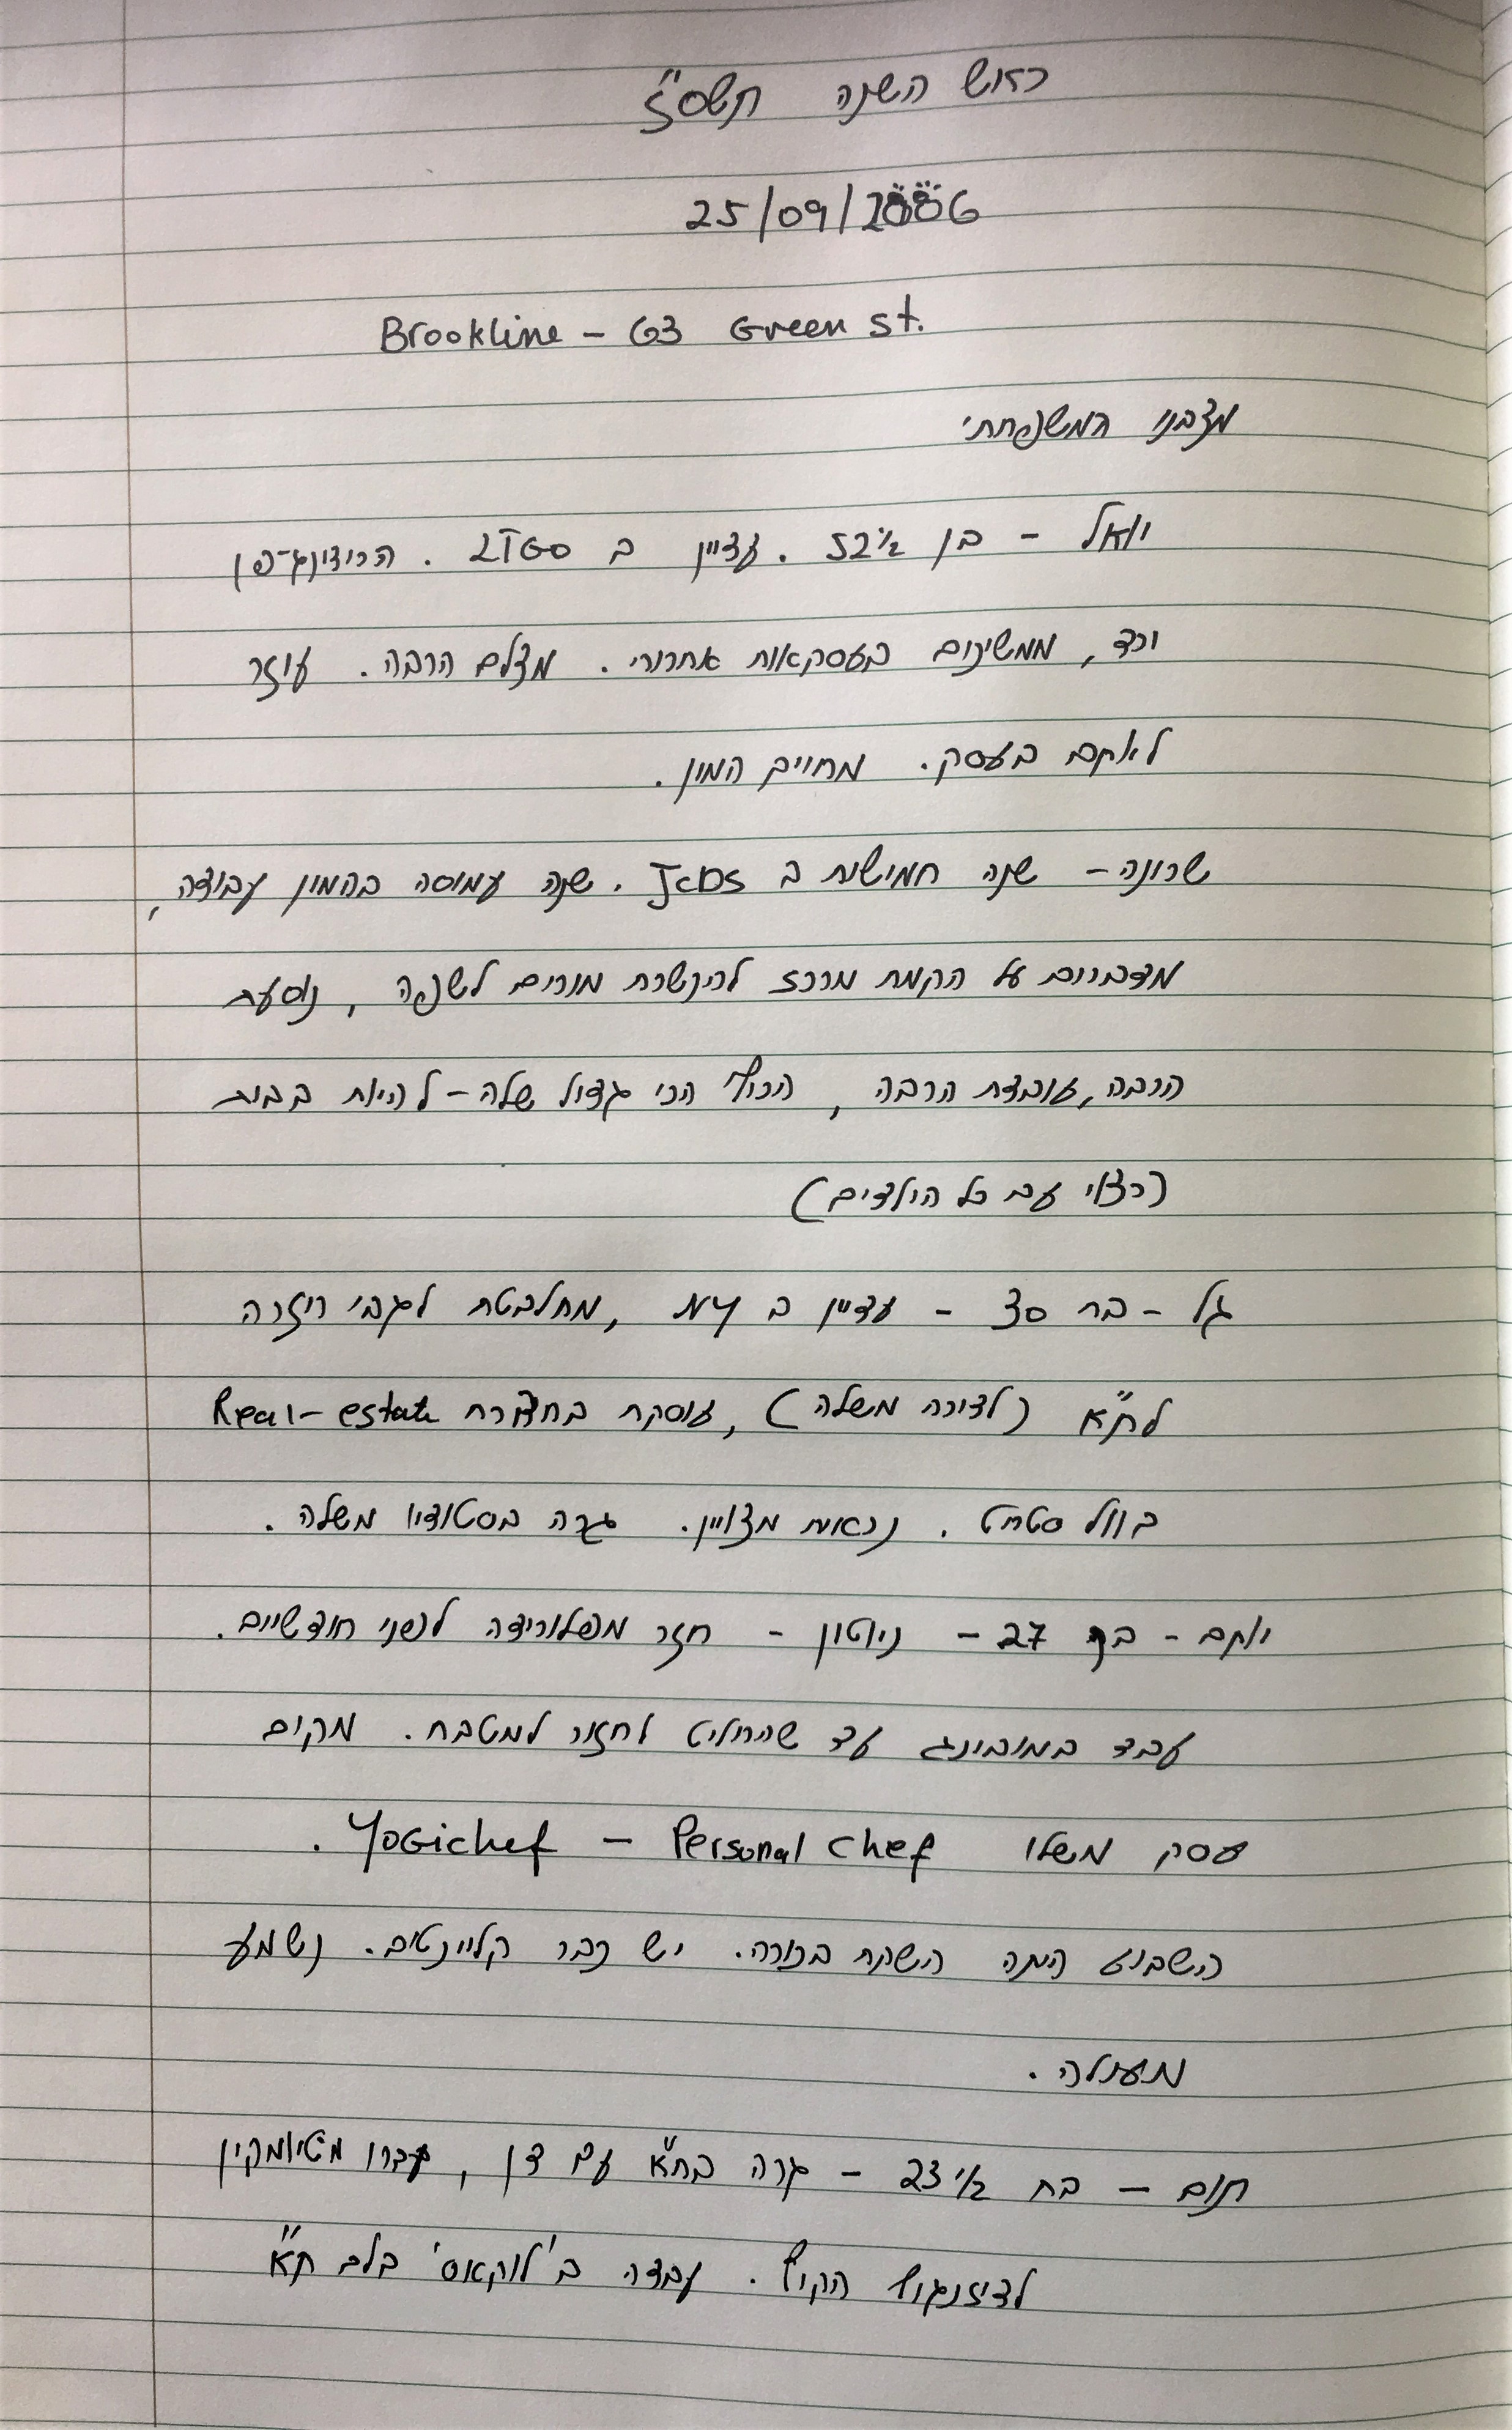 ראש השנה תשס"ז
25/09/2006
Brookline - 63 Green st.
מצבנו המשפחתי
יואל - בן 52½. עדיין ב LTGO. הרידינג-פן
ירד, ממשיכים בעסקאות אחרות. מצלם הרבה. עוזר
לאתם בעסק. מחויים המון.
שרונה - שנה חמישית ב JCDS. שנה עמוסה בהמון עבודה,
מדברים על הקמת מרכז להכשרת מורים לשפה, נוסעת
הרבה, עובדת הרבה, הכיף הכי גדול שלה - להיות בבית
(רצוי עם כל הילדים)
גל - בת 30 - עדיין ב NY, מתלבטת לגבי חזרה
לת"א (לדירה משלה), עוסקת בחברת Real-estate
בוול סטריט. נראית מצויין. גרה בסטודיו משלה.
יותם - בן 27 - ניוטון - חזר מפלורידה לפני חודשיים.
עבד במובינג עד שהחליט לחזור למטבח. מקים
עסק משלו Yogichef - Personal chef.
השבוע היתה השקה ברורה. יש כבר קליינטים. נשמע
מעולה.
תום - בת 23½ - גרה בת"א עם דן, עברו מטיומקין
לדיזנגוף הקיץ. עבדה ב'לוקאס' בלב ת"א